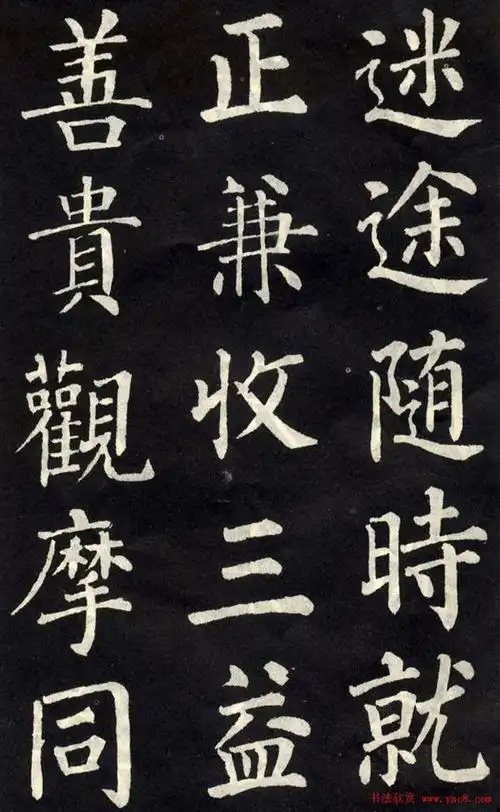 迷途随時就
正兼收三益
善貴觀摩同
书法欣赏 www.yac8.com